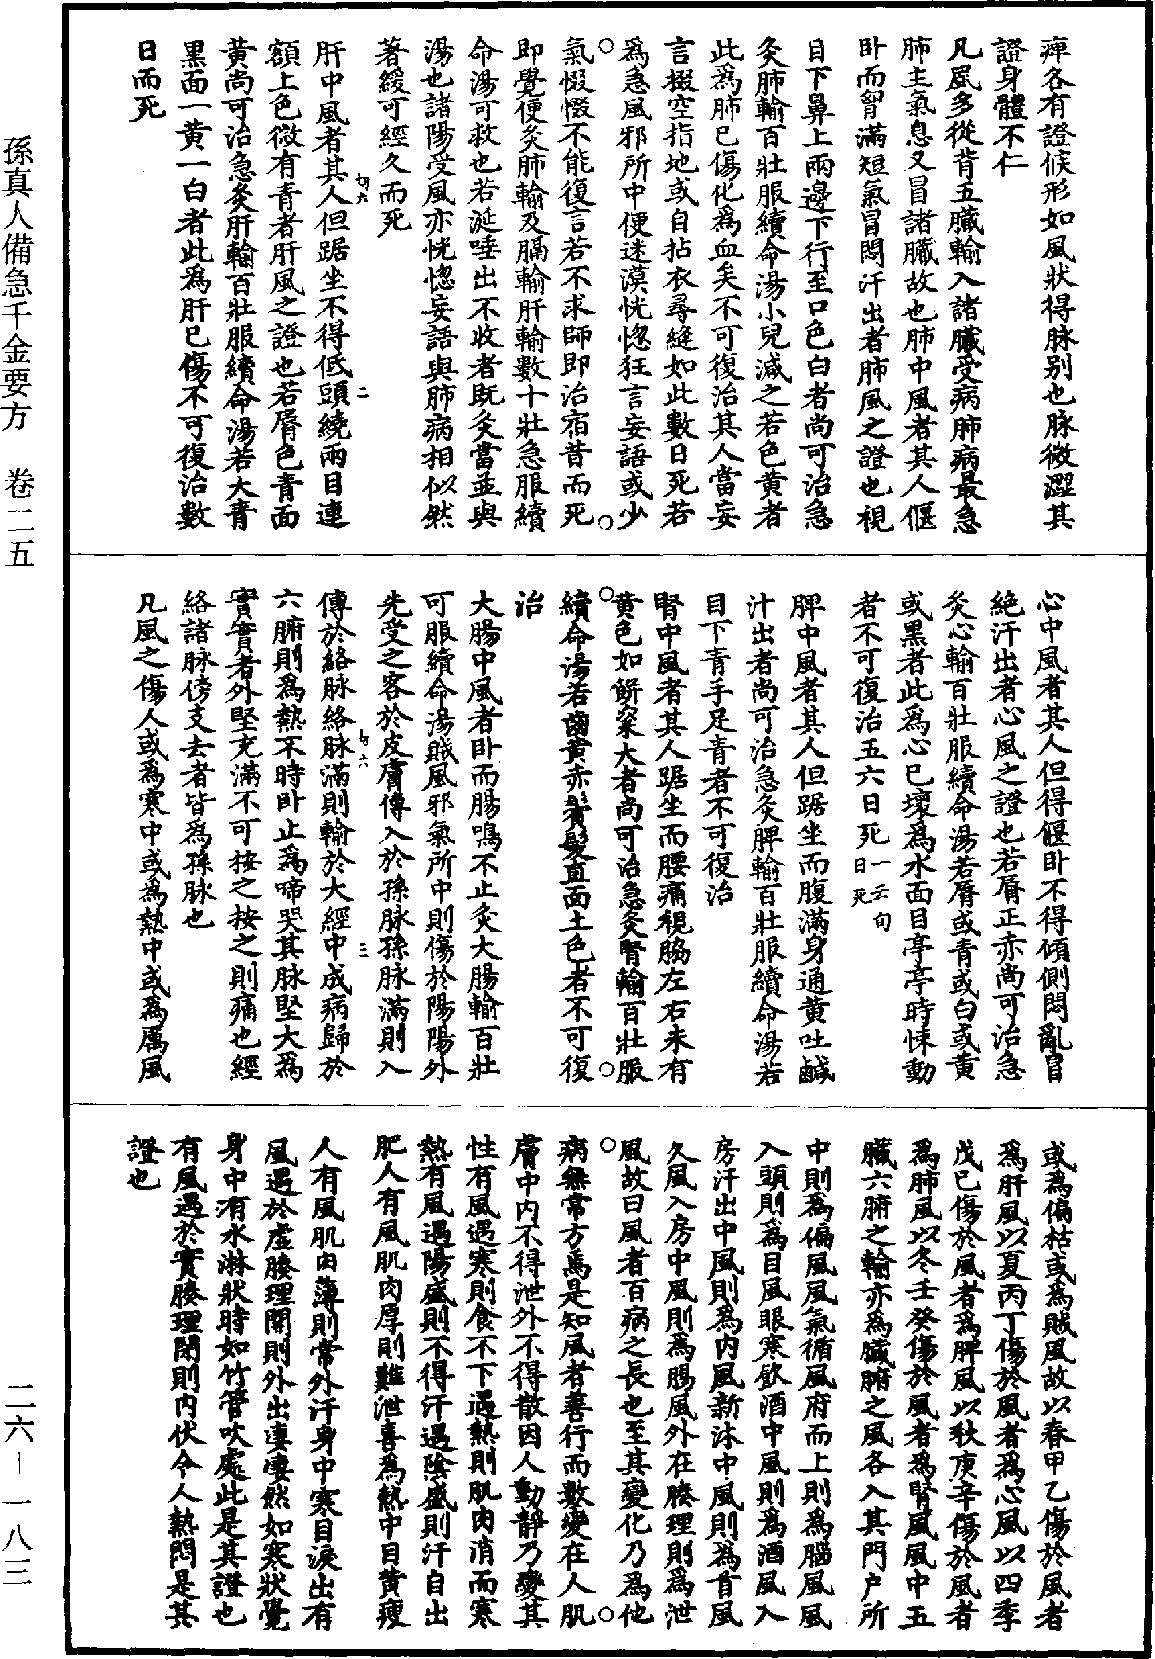 痺各有證候形如風狀得脉别也脉微澀其
證身體不仁
凡風多從背五臟輸入諸臟受病肺病最急
肺主氣息又冒諸臟故也肺中風者其人偃
卧而胷滿短氣冒悶汗出者肺風之證也視
目下鼻上兩邊下行至口色白者尚可治急
灸肺輸百壯服續命湯小兒減之若色黄者
此為肺已傷化為血矣不可復治其人當妄
言掇空指地或自拈衣尋縫如此數日死若
為急風邪所中便迷漠恍惚狂言妄語或少
氣惙惙不能復言若不求師即治宿昔而死
即覺便灸肺輸及膈輸肝輸數十壯急服續
命湯可救也若涎唾出不收者既灸當並與
湯也諸陽受風亦恍惚妄語與肺病相似然
著緩可經久而死
肝中風者其人但踞坐不得低頭繞兩目連
額上色微有青者肝風之證也若脣色青面
黄尚可治急灸肝輸百壯服續命湯若大青
黒面一黄一白者此為肝已傷不可復治數
日而死
心中風者其人但得偃卧不得傾側悶亂冒
絶汗出者心風之證也若脣正赤尚可治急
灸心輸百壯服續命湯若脣或青或白或黄
或黒者此為心已壞為水面目亭亭時悚動
者不可復治五六日死一云旬日死
脾中風者其人但踞坐而腹滿身通黄吐鹹
汁出者尚可治急灸脾輸百壯服續命湯若
目下青手足青者不可復治
腎中風者其人踞坐而腰痛視脇左右未有
黄色如餅粢大者尚可治急灸腎輸百壯服
續命湯若齒黄赤鬢髮直面土色者不可復
治
大腸中風者卧而腸鳴不止灸大腸輸百壯
可服續命湯賊風邪氣所中則傷於陽陽外
先受之客於皮膚傳入於孫脉孫脉滿則入
傳於絡脉絡脉滿則輸於大經中成病歸於
六腑則為熱不時卧止為啼哭其脉堅大為
實實者外堅充滿不可按之按之則痛也經
絡諸脉傍支去者皆為孫脉也
凡風之傷人或為寒中或為熱中或為厲風
或為偏枯或為賊風故以春甲乙傷於風者
為肝風以夏丙丁傷於風者為心風以四季
戊已傷於風者為脾風以秋庚辛傷於風者
為肺風以冬壬癸傷於風者為腎風風中五
臟六腑之輸亦為臟腑之風各入其門户所
中則為偏風風氣循風府而上則為腦風風
入頭則為目風眼寒飲酒中風則為酒風入
房汗出中風則為内風新沐中風則為首風
久風入房中風則為腸風外在腠理則為泄
風故曰風者百病之長也至其變化乃為他
病無常方焉是知風者善行而數變在人肌
膚中内不得泄外不得散因人動靜乃變其
性有風遇寒則食不下遇熱則肌肉消而寒
熱有風遇陽盛則不得汗遇陰盛則汗自出
肥人有風肌肉厚則難泄喜為熱中目黄瘦
人有風肌肉薄則常外汗身中寒目淚出有
風遇於虚腠理開則外出凄凄然如寒狀覺
身中有水淋狀時如竹管吹處此是其證也
有風遇於實腠理閉則内伏令人熱悶是其
證也
孫真人備急千金要方 卷二五
二六－一八三